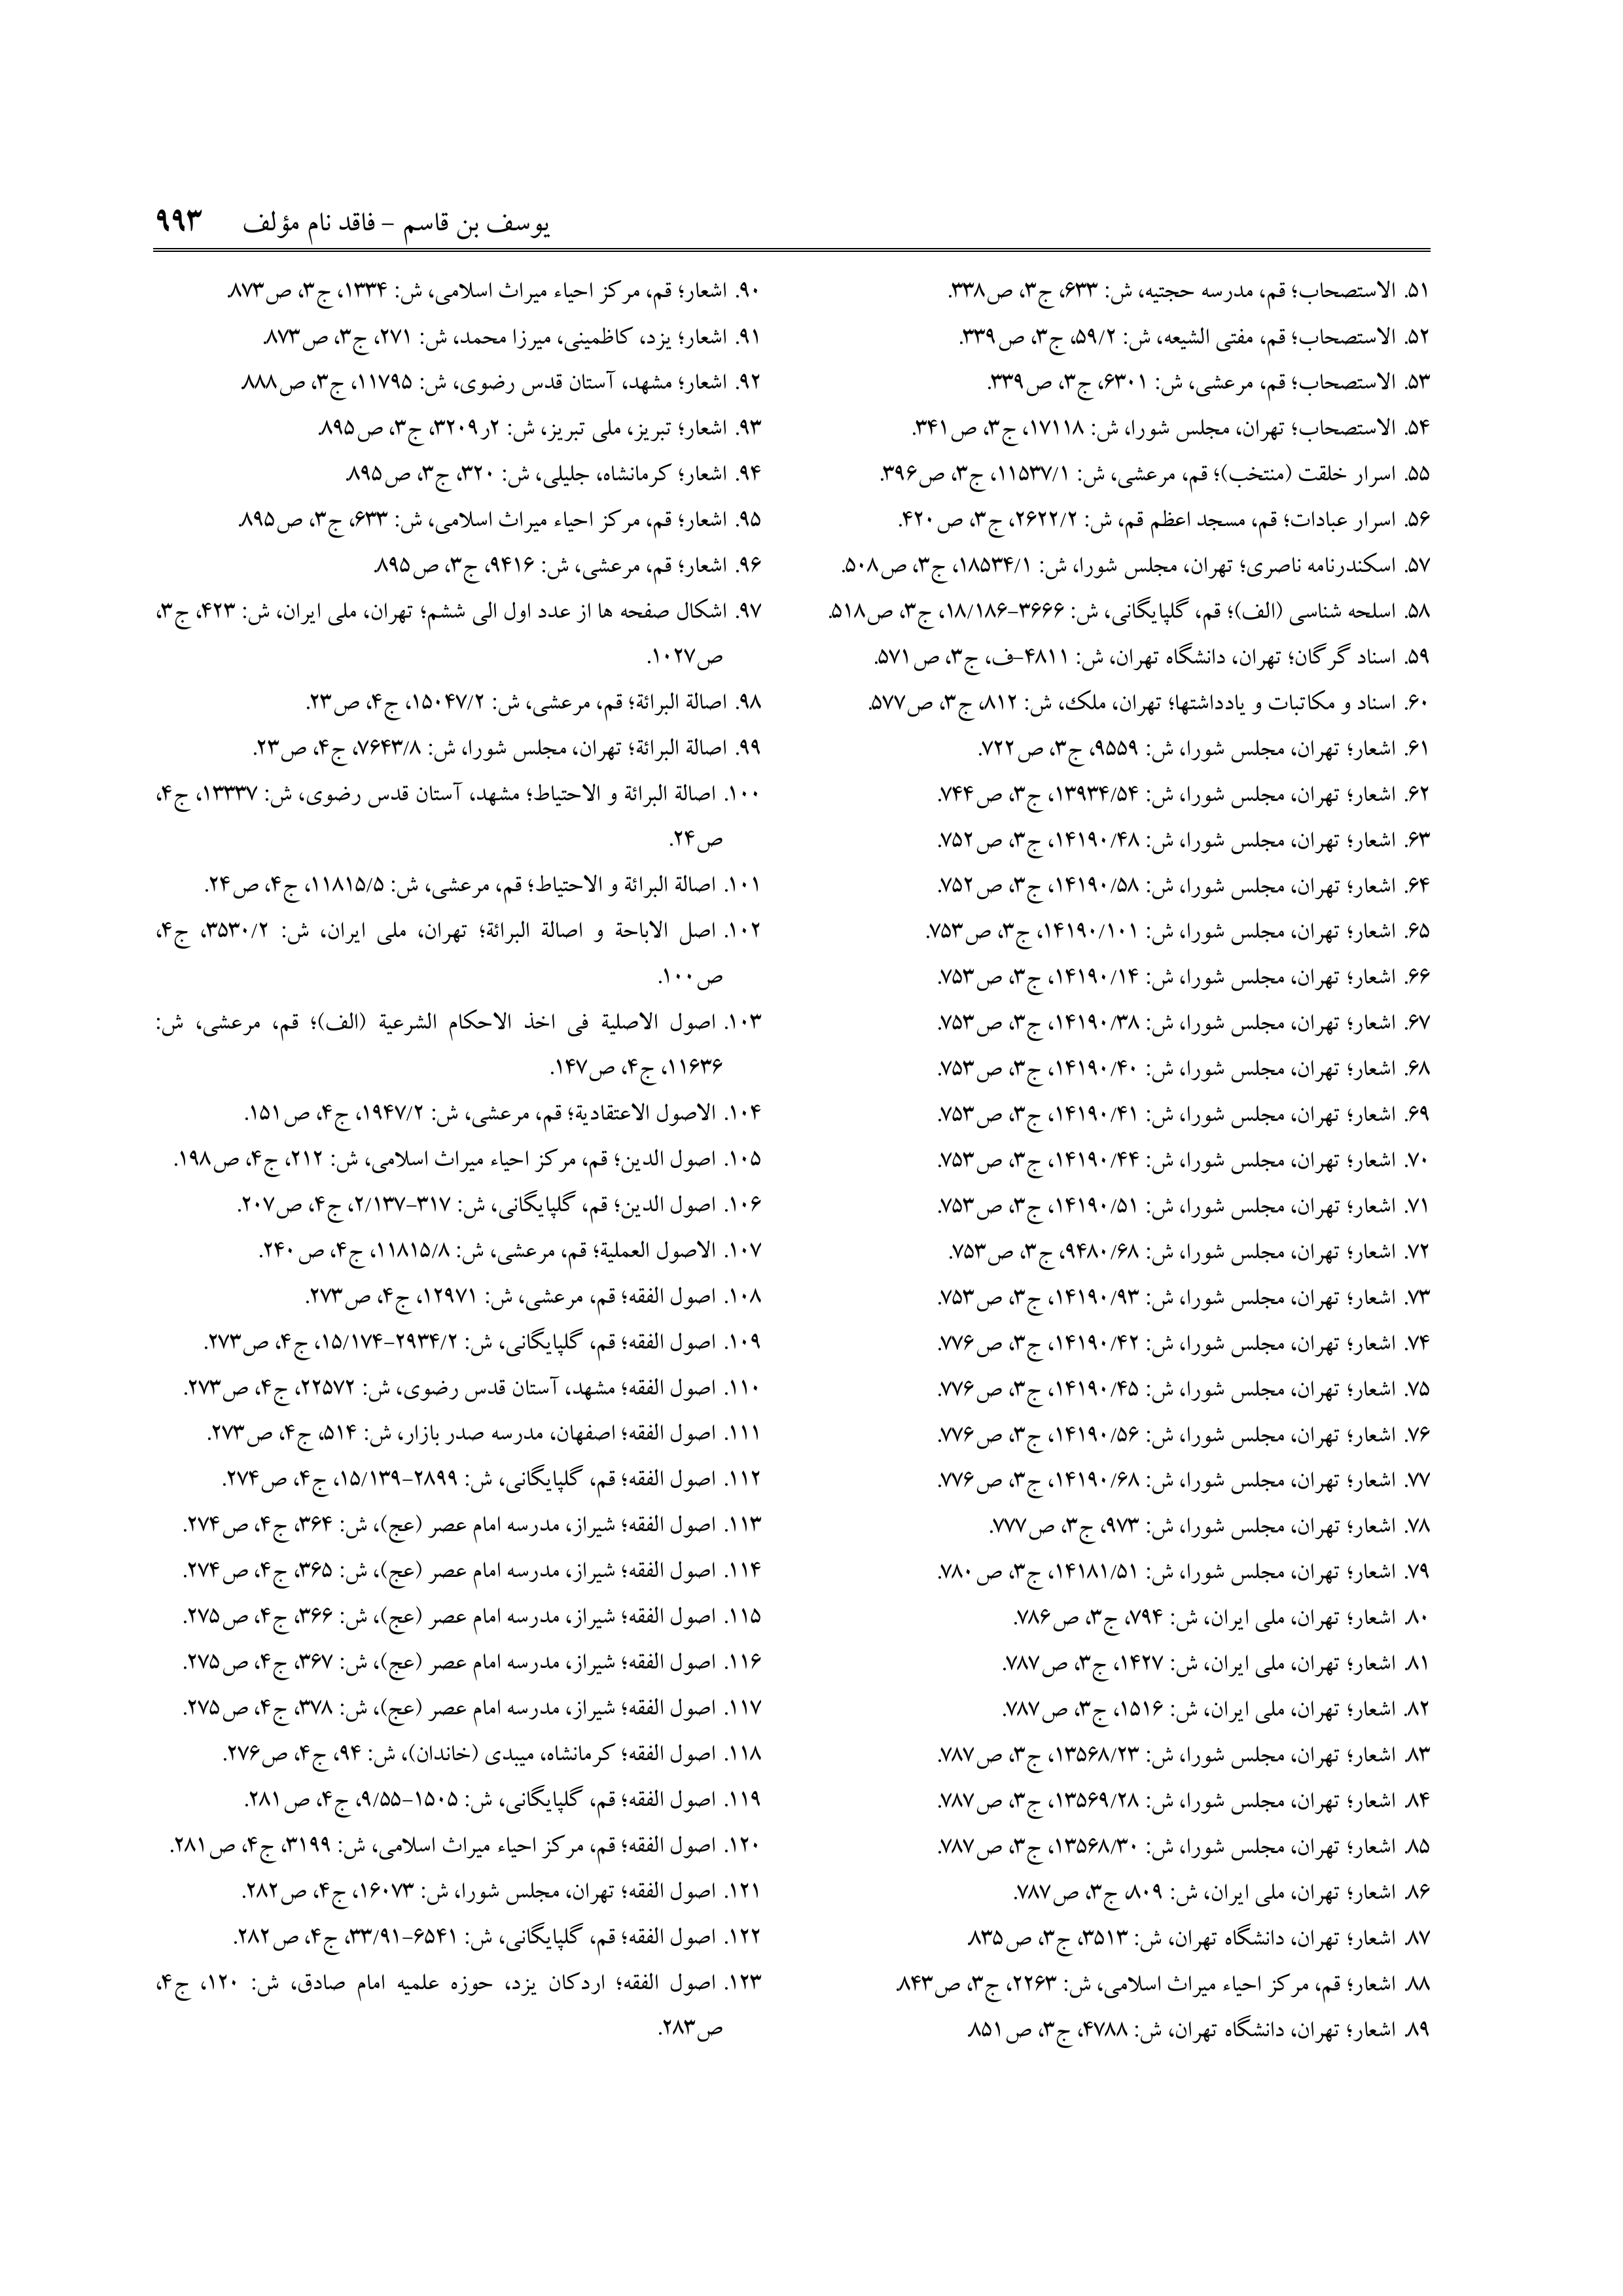 یوسف بن قاسم – فاقد نام مؤلف ۹۹۳
۵۱. الاستصحاب؛ قم، مدرسه حجتیه، ش: ۶۳۳، ج۳، ص۳۳۸.
۵۲. الاستصحاب؛ قم، مفتی الشیعه، ش: ۵۹/۲، ج۳، ص۳۳۹.
۵۳. الاستصحاب؛ قم، مرعشی، ش: ۶۳۰۱، ج۳، ص۳۳۹.
۵۴. الاستصحاب؛ تهران، مجلس شورا، ش: ۱۷۱۱۸، ج۳، ص۳۴۱.
۵۵. اسرار خلقت (منتخب)؛ قم، مرعشی، ش: ۱۱۵۳۷/۱، ج۳، ص۳۹۶.
۵۶. اسرار عبادات؛ قم، مسجد اعظم قم، ش: ۲۶۲۲/۲، ج۳، ص۴۲۰.
۵۷. اسکندرنامه ناصری؛ تهران، مجلس شورا، ش: ۱۸۵۳۴/۱، ج۳، ص۵۰۸.
۵۸. اسلحه شناسی (الف)؛ قم، گلپایگانی، ش: ۳۶۶۶–۱۸/۱۸۶، ج۳، ص۵۱۸.
۵۹. اسناد گرگان؛ تهران، دانشگاه تهران، ش: ۴۸۱۱–ف، ج۳، ص۵۷۱.
۶۰. اسناد و مکاتبات و یادداشتها؛ تهران، ملک، ش: ۸۱۲، ج۳، ص۵۷۷.
۶۱. اشعار؛ تهران، مجلس شورا، ش: ۹۵۵۹، ج۳، ص۷۲۲.
۶۲. اشعار؛ تهران، مجلس شورا، ش: ۱۳۹۳۴/۵۴، ج۳، ص۷۴۴.
۶۳. اشعار؛ تهران، مجلس شورا، ش: ۱۴۱۹۰/۴۸، ج۳، ص۷۵۲.
۶۴. اشعار؛ تهران، مجلس شورا، ش: ۱۴۱۹۰/۵۸، ج۳، ص۷۵۲.
۶۵. اشعار؛ تهران، مجلس شورا، ش: ۱۴۱۹۰/۱۰۱، ج۳، ص۷۵۳.
۶۶. اشعار؛ تهران، مجلس شورا، ش: ۱۴۱۹۰/۱۴، ج۳، ص۷۵۳.
۶۷. اشعار؛ تهران، مجلس شورا، ش: ۱۴۱۹۰/۳۸، ج۳، ص۷۵۳.
۶۸. اشعار؛ تهران، مجلس شورا، ش: ۱۴۱۹۰/۴۰، ج۳، ص۷۵۳.
۶۹. اشعار؛ تهران، مجلس شورا، ش: ۱۴۱۹۰/۴۱، ج۳، ص۷۵۳.
۷۰. اشعار؛ تهران، مجلس شورا، ش: ۱۴۱۹۰/۴۴، ج۳، ص۷۵۳.
۷۱. اشعار؛ تهران، مجلس شورا، ش: ۱۴۱۹۰/۵۱، ج۳، ص۷۵۳.
۷۲. اشعار؛ تهران، مجلس شورا، ش: ۹۴۸۰/۶۸، ج۳، ص۷۵۳.
۷۳. اشعار؛ تهران، مجلس شورا، ش: ۱۴۱۹۰/۹۳، ج۳، ص۷۵۳.
۷۴. اشعار؛ تهران، مجلس شورا، ش: ۱۴۱۹۰/۴۲، ج۳، ص۷۷۶.
۷۵. اشعار؛ تهران، مجلس شورا، ش: ۱۴۱۹۰/۴۵، ج۳، ص۷۷۶.
۷۶. اشعار؛ تهران، مجلس شورا، ش: ۱۴۱۹۰/۵۶، ج۳، ص۷۷۶.
۷۷. اشعار؛ تهران، مجلس شورا، ش: ۱۴۱۹۰/۶۸، ج۳، ص۷۷۶.
۷۸. اشعار؛ تهران، مجلس شورا، ش: ۹۷۳، ج۳، ص۷۷۷.
۷۹. اشعار؛ تهران، مجلس شورا، ش: ۱۴۱۸۱/۵۱، ج۳، ص۷۸۰.
۸۰. اشعار؛ تهران، ملی ایران، ش: ۷۹۴، ج۳، ص۷۸۶.
۸۱. اشعار؛ تهران، ملی ایران، ش: ۱۴۲۷، ج۳، ص۷۸۷.
۸۲. اشعار؛ تهران، ملی ایران، ش: ۱۵۱۶، ج۳، ص۷۸۷.
۸۳. اشعار؛ تهران، مجلس شورا، ش: ۱۳۵۶۸/۲۳، ج۳، ص۷۸۷.
۸۴. اشعار؛ تهران، مجلس شورا، ش: ۱۳۵۶۹/۲۸، ج۳، ص۷۸۷.
۸۵. اشعار؛ تهران، مجلس شورا، ش: ۱۳۵۶۸/۳۰، ج۳، ص۷۸۷.
۸۶. اشعار؛ تهران، ملی ایران، ش: ۸۰۹، ج۳، ص۷۸۷.
۸۷. اشعار؛ تهران، دانشگاه تهران، ش: ۳۵۱۳، ج۳، ص۸۳۵.
۸۸. اشعار؛ قم، مرکز احیاء میراث اسلامی، ش: ۲۲۶۳، ج۳، ص۸۴۳.
۸۹. اشعار؛ تهران، دانشگاه تهران، ش: ۴۷۸۸، ج۳، ص۸۵۱.
۹۰. اشعار؛ قم، مرکز احیاء میراث اسلامی، ش: ۱۳۳۴، ج۳، ص۸۷۳.
۹۱. اشعار؛ یزد، کاظمینی، میرزا محمد، ش: ۲۷۱، ج۳، ص۸۷۳.
۹۲. اشعار؛ مشهد، آستان قدس رضوی، ش: ۱۱۷۹۵، ج۳، ص۸۸۸.
۹۳. اشعار؛ تبریز، ملی تبریز، ش: ۲ر۳۲۰۹، ج۳، ص۸۹۵.
۹۴. اشعار؛ کرمانشاه، جلیلی، ش: ۳۲۰، ج۳، ص۸۹۵.
۹۵. اشعار؛ قم، مرکز احیاء میراث اسلامی، ش: ۶۳۳، ج۳، ص۸۹۵.
۹۶. اشعار؛ قم، مرعشی، ش: ۹۴۱۶، ج۳، ص۸۹۵.
۹۷. اشکال صفحه ها از عدد اول الی ششم؛ تهران، ملی ایران، ش: ۴۲۳، ج۳،
ص۱۰۲۷.
۹۸. اصالة البرائة؛ قم، مرعشی، ش: ۱۵۰۴۷/۲، ج۴، ص۲۳.
۹۹. اصالة البرائة؛ تهران، مجلس شورا، ش: ۷۶۴۳/۸، ج۴، ص۲۳.
۱۰۰. اصالة البرائة و الاحتیاط؛ مشهد، آستان قدس رضوی، ش: ۱۳۳۳۷، ج۴،
ص۲۴.
۱۰۱. اصالة البرائة و الاحتیاط؛ قم، مرعشی، ش: ۱۱۸۱۵/۵، ج۴، ص۲۴.
۱۰۲. اصل الاباحة و اصالة البرائة؛ تهران، ملی ایران، ش: ۳۵۳۰/۲، ج۴،
ص۱۰۰.
۱۰۳. اصول الاصلیة فی اخذ الاحکام الشرعیة (الف)؛ قم، مرعشی، ش:
۱۱۶۳۶، ج۴، ص۱۴۷.
۱۰۴. الاصول الاعتقادیة؛ قم، مرعشی، ش: ۱۹۴۷/۲، ج۴، ص۱۵۱.
۱۰۵. اصول الدین؛ قم، مرکز احیاء میراث اسلامی، ش: ۲۱۲، ج۴، ص۱۹۸.
۱۰۶. اصول الدین؛ قم، گلپایگانی، ش: ۳۱۷–۲/۱۳۷، ج۴، ص۲۰۷.
۱۰۷. الاصول العملیة؛ قم، مرعشی، ش: ۱۱۸۱۵/۸، ج۴، ص۲۴۰.
۱۰۸. اصول الفقه؛ قم، مرعشی، ش: ۱۲۹۷۱، ج۴، ص۲۷۳.
۱۰۹. اصول الفقه؛ قم، گلپایگانی، ش: ۲۹۳۴/۲–۱۵/۱۷۴، ج۴، ص۲۷۳.
۱۱۰. اصول الفقه؛ مشهد، آستان قدس رضوی، ش: ۲۲۵۷۲، ج۴، ص۲۷۳.
۱۱۱. اصول الفقه؛ اصفهان، مدرسه صدر بازار، ش: ۵۱۴، ج۴، ص۲۷۳.
۱۱۲. اصول الفقه؛ قم، گلپایگانی، ش: ۲۸۹۹–۱۵/۱۳۹، ج۴، ص۲۷۴.
۱۱۳. اصول الفقه؛ شیراز، مدرسه امام عصر (عج)، ش: ۳۶۴، ج۴، ص۲۷۴.
۱۱۴. اصول الفقه؛ شیراز، مدرسه امام عصر (عج)، ش: ۳۶۵، ج۴، ص۲۷۴.
۱۱۵. اصول الفقه؛ شیراز، مدرسه امام عصر (عج)، ش: ۳۶۶، ج۴، ص۲۷۵.
۱۱۶. اصول الفقه؛ شیراز، مدرسه امام عصر (عج)، ش: ۳۶۷، ج۴، ص۲۷۵.
۱۱۷. اصول الفقه؛ شیراز، مدرسه امام عصر (عج)، ش: ۳۷۸، ج۴، ص۲۷۵.
۱۱۸. اصول الفقه؛ کرمانشاه، میبدی (خاندان)، ش: ۹۴، ج۴، ص۲۷۶.
۱۱۹. اصول الفقه؛ قم، گلپایگانی، ش: ۱۵۰۵–۹/۵۵، ج۴، ص۲۸۱.
۱۲۰. اصول الفقه؛ قم، مرکز احیاء میراث اسلامی، ش: ۳۱۹۹، ج۴، ص۲۸۱.
۱۲۱. اصول الفقه؛ تهران، مجلس شورا، ش: ۱۶۰۷۳، ج۴، ص۲۸۲.
۱۲۲. اصول الفقه؛ قم، گلپایگانی، ش: ۶۵۴۱–۳۳/۹۱، ج۴، ص۲۸۲.
۱۲۳. اصول الفقه؛ اردکان یزد، حوزه علمیه امام صادق، ش: ۱۲۰، ج۴،
ص۲۸۳.